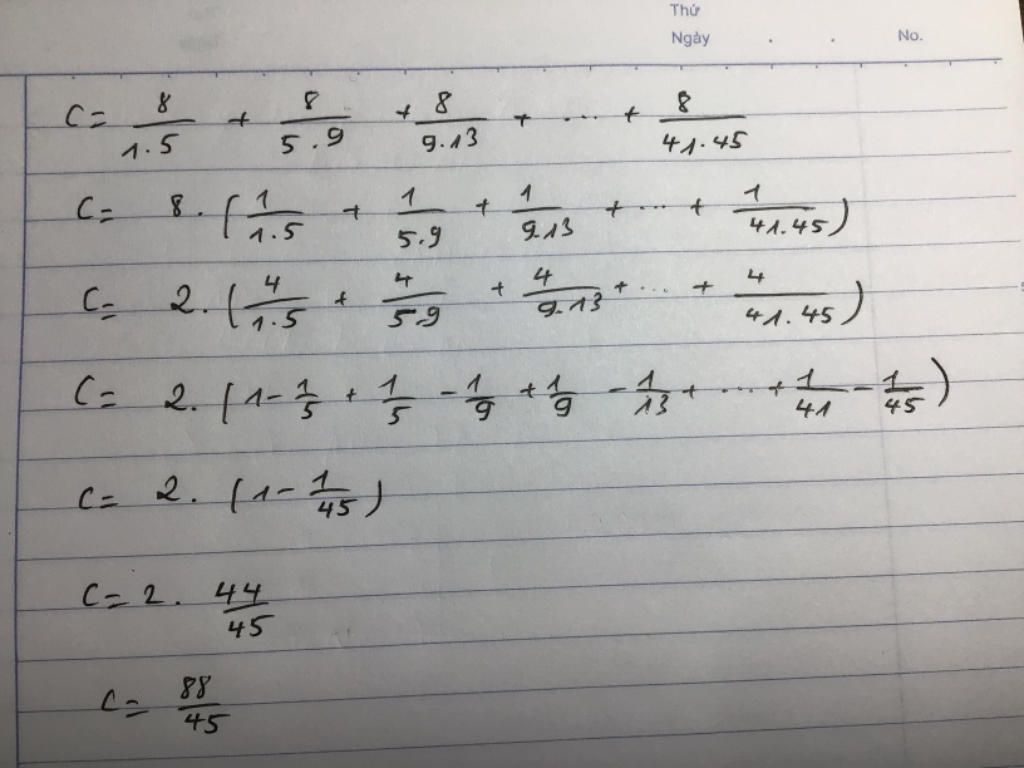 Thứ
Ngày . . No.
C = 8/1.5 + 8/5.9 + 8/9.13 + ... + 8/41.45
C = 8. (1/1.5 + 1/5.9 + 1/9.13 + ... + 1/41.45)
C = 2. (4/1.5 + 4/5.9 + 4/9.13 + ... + 4/41.45)
C = 2. (1 - 1/5 + 1/5 - 1/9 + 1/9 - 1/13 + ... + 1/41 - 1/45)
C = 2. (1 - 1/45)
C = 2. 44/45
C = 88/45